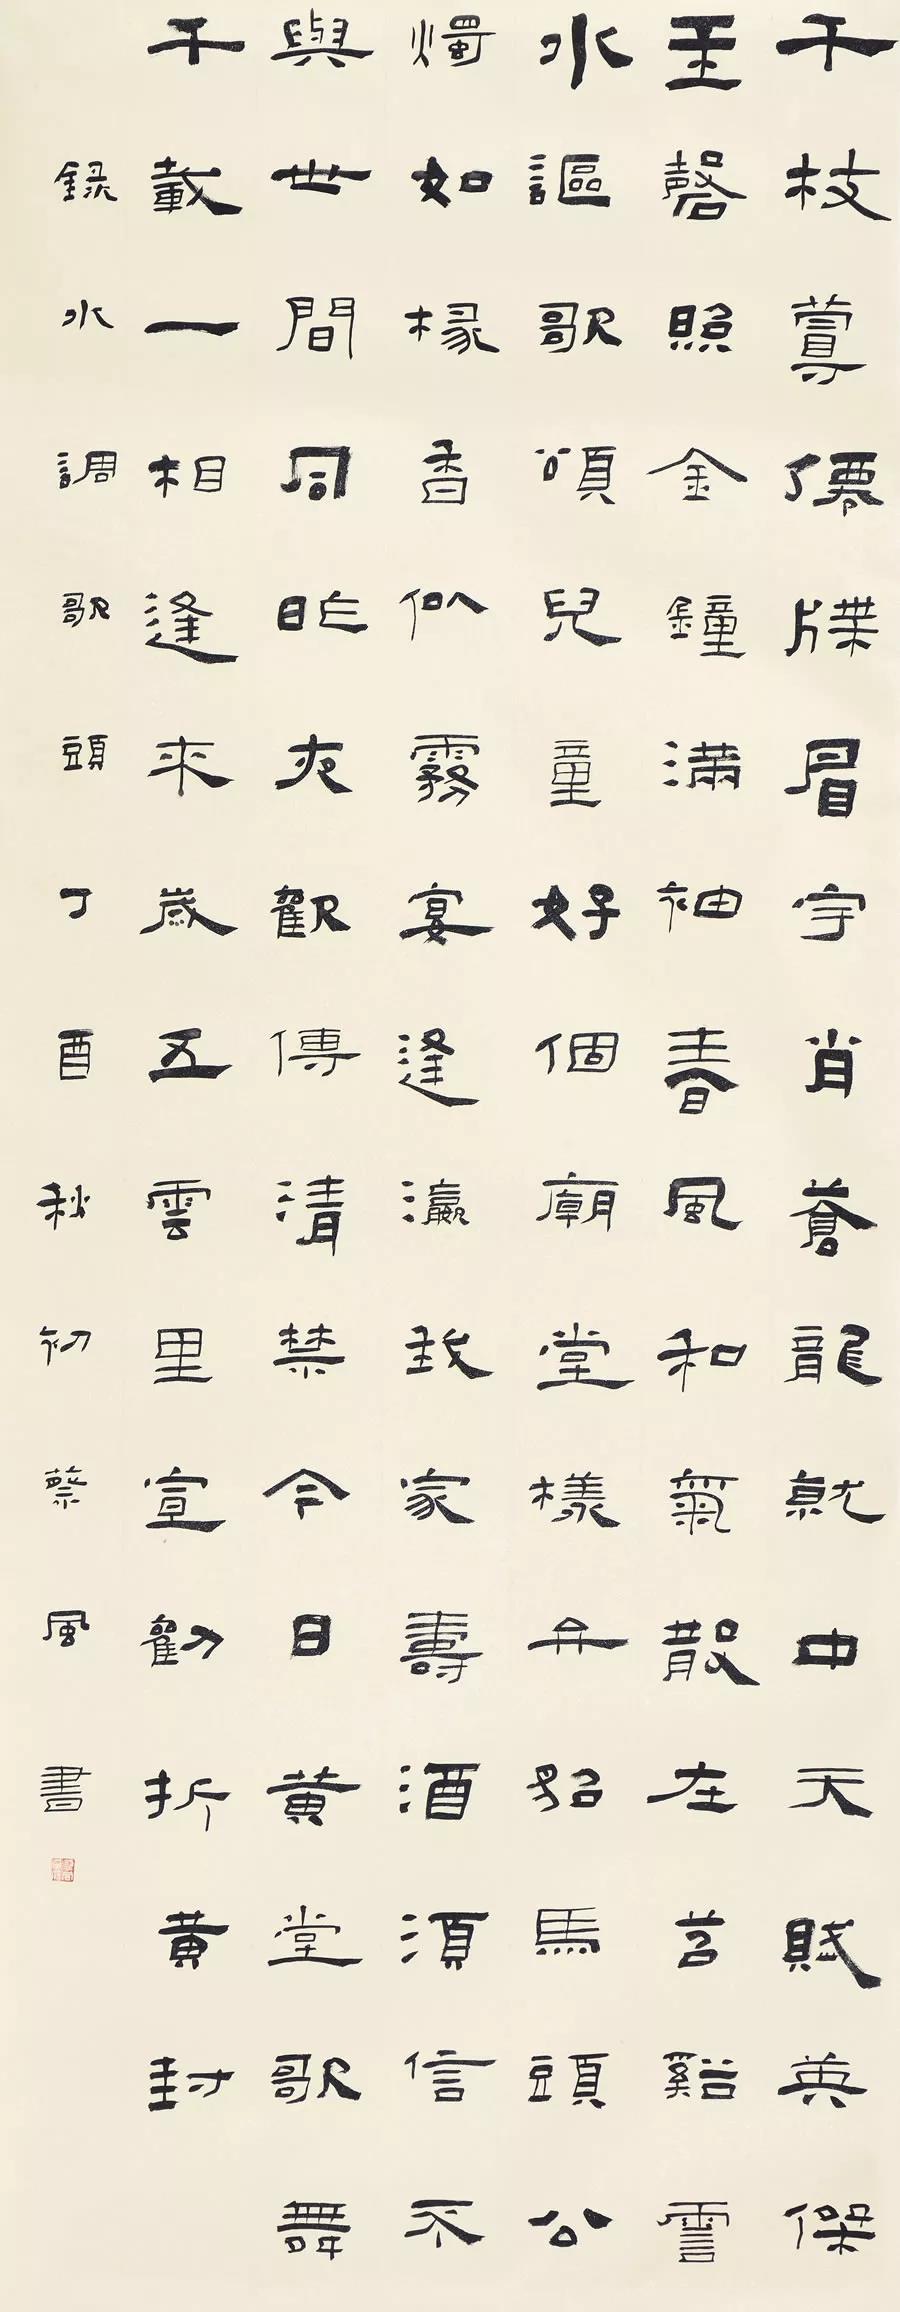 千枝蕚僊牒眉宇肖蒼龍就中天賦英傑
玉磬照金鐘滿袖春風和氣散在苕谿霅
水謳歌頌兒童好個廟堂樣弁貂馬頭公
燭如椽香似霧宴逢瀛我家壽酒須信不
與世間同昨夜歡傳清禁今日黃堂歌舞
千載一相逢來歲五雲里宣勸折黃封
錄水調歌頭丁酉秋初蔡風書